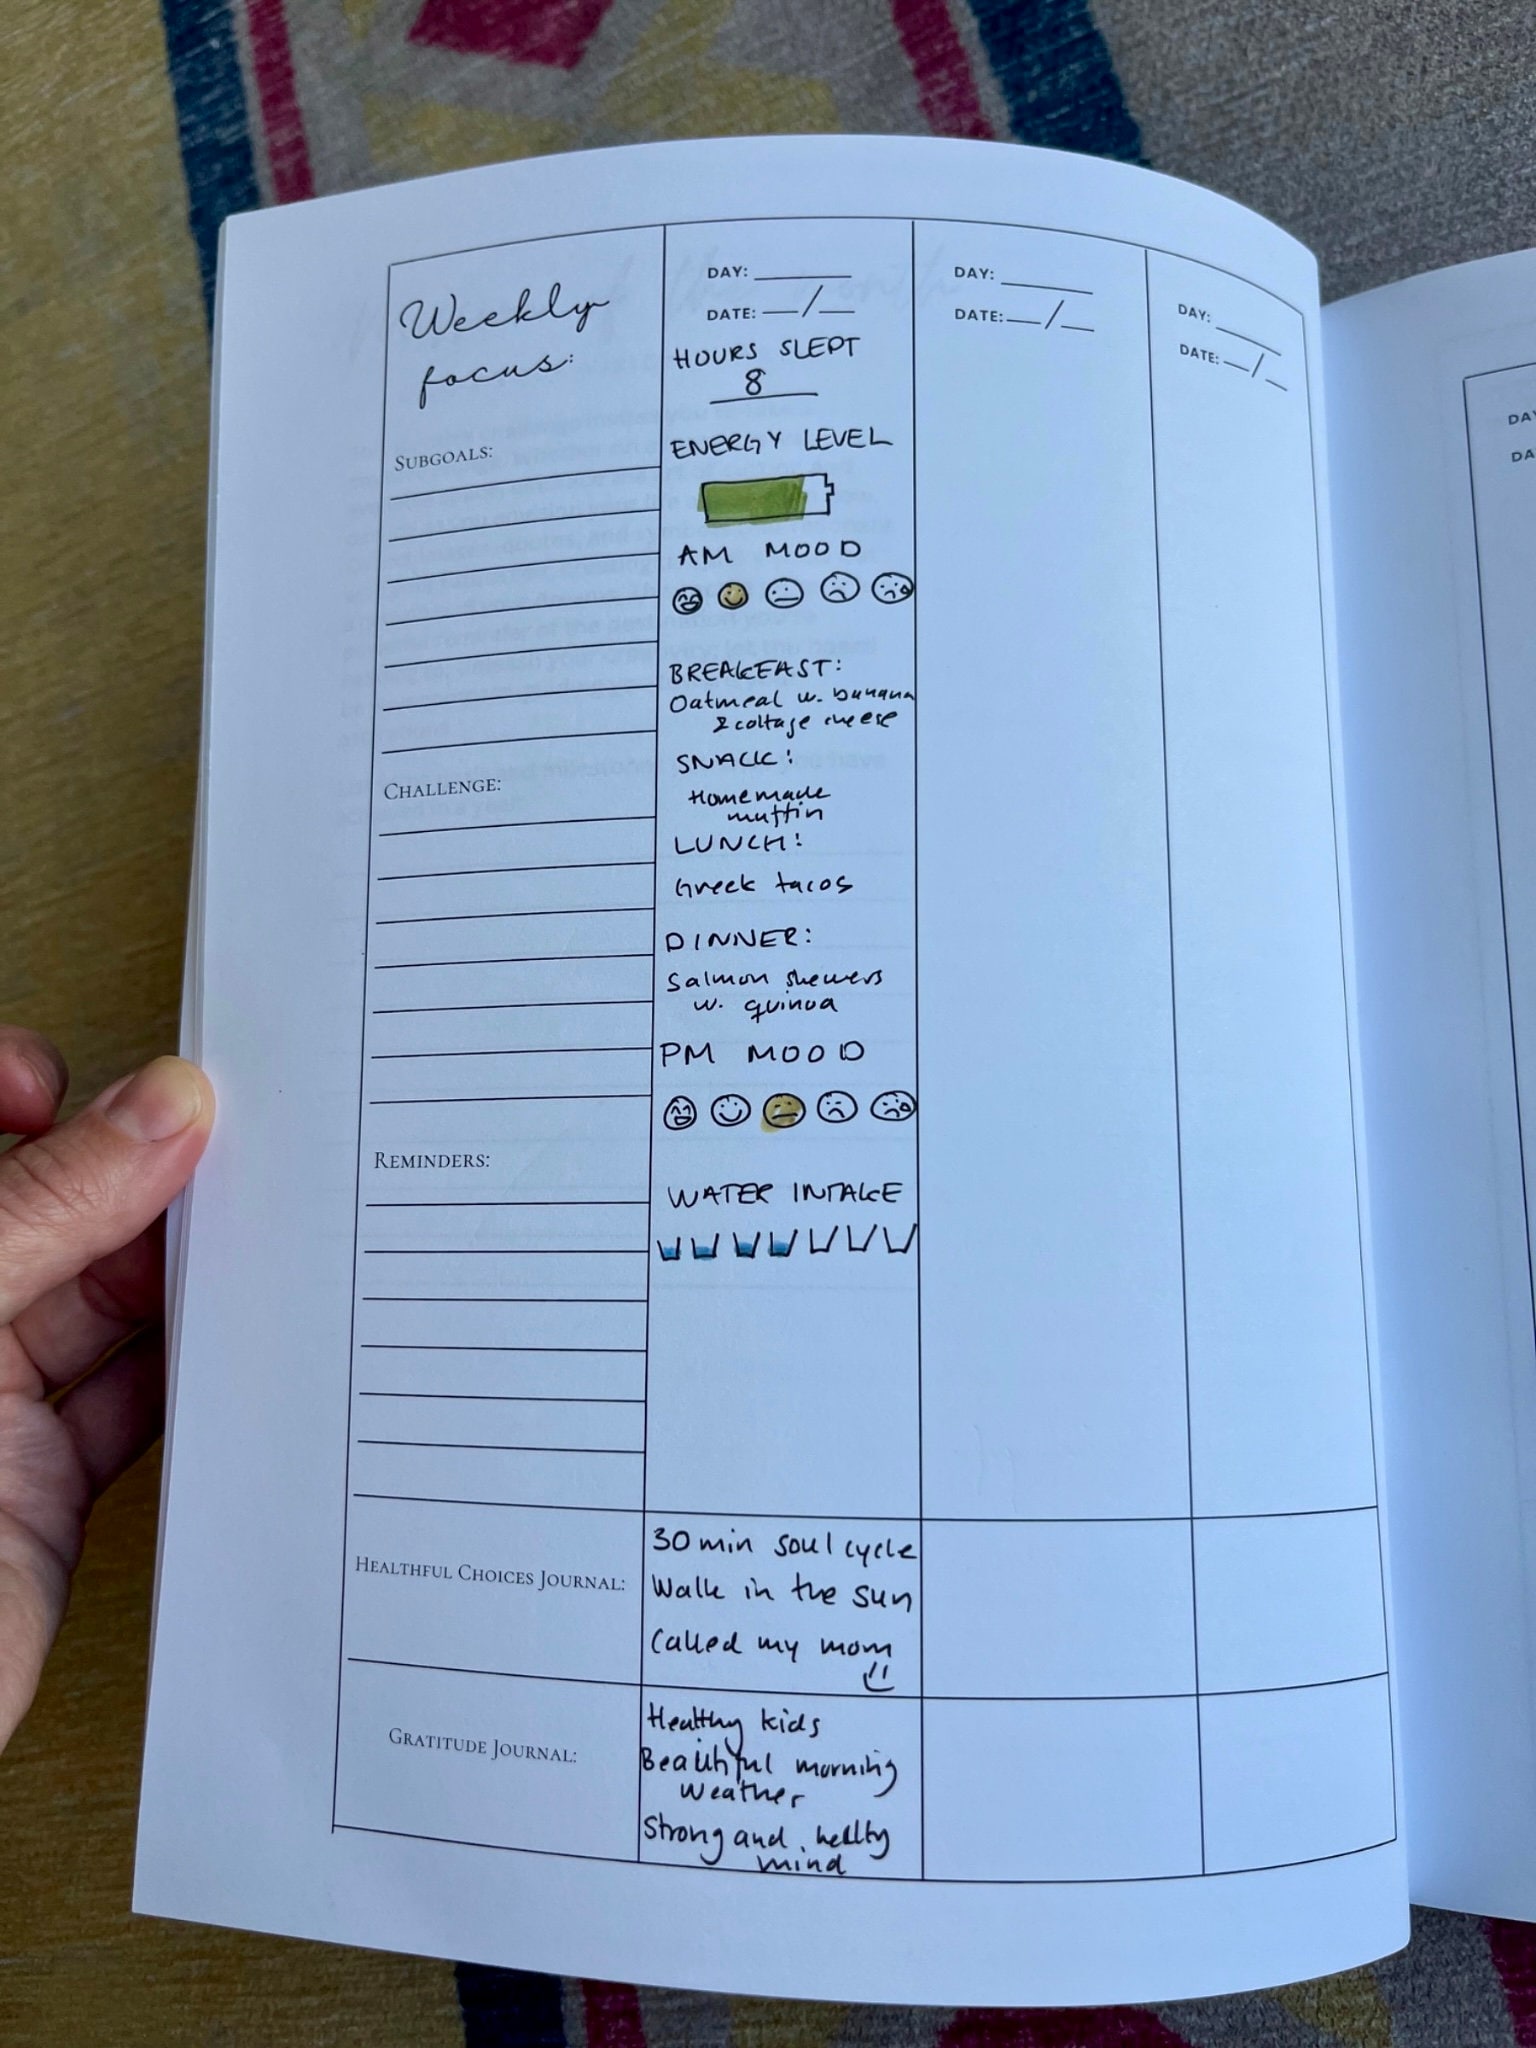 Weekly
focus:
SUBGOALS:
CHALLENGE:
REMINDERS:
HEALTHFUL CHOICES JOURNAL:
GRATITUDE JOURNAL:
DAY:
DATE: /
HOURS SLEPT
8
ENERGY LEVEL
AM MOOD
BREAKFAST:
Oatmeal w. banana
& cottage cheese
SNACK:
Homemade
muffin
LUNCH:
Greek tacos
DINNER:
Salmon skewers
w. quinoa
PM MOOD
WATER INTAKE
30 min soul cycle
Walk in the sun
Called my mom
Healthy kids
Beautiful morning
weather
Strong and
mind
DAY:
DATE: /
DAY:
DATE: /
DA